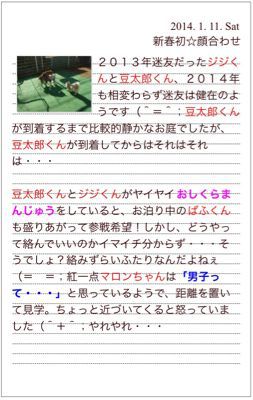 2014. 1. 11. Sat
新春初☆顔合わせ
２０１３年迷友だったジジく
んと豆太郎くん、２０１４年
も相変わらず迷友は健在のよ
うです（＾＝＾；豆太郎くん
が到着するまで比較的静かなお庭でしたが、
豆太郎くんが到着してからはそれはそれ
は・・・
豆太郎くんとジジくんがヤイヤイおしくらま
んじゅうをしていると、お泊り中のぱふくん
も盛りあがって参戦希望！しかし、どうやっ
て絡んでいいのかイマイチ分からず・・・そ
うでしょ？絡みずらいふたりなんだよねぇ
（＝　＝；紅一点マロンちゃんは「男子っ
て・・・」と思っているようで、距離を置い
て見学。ちょっと近づいてくると怒っていま
した（＾＋＾；やれやれ・・・